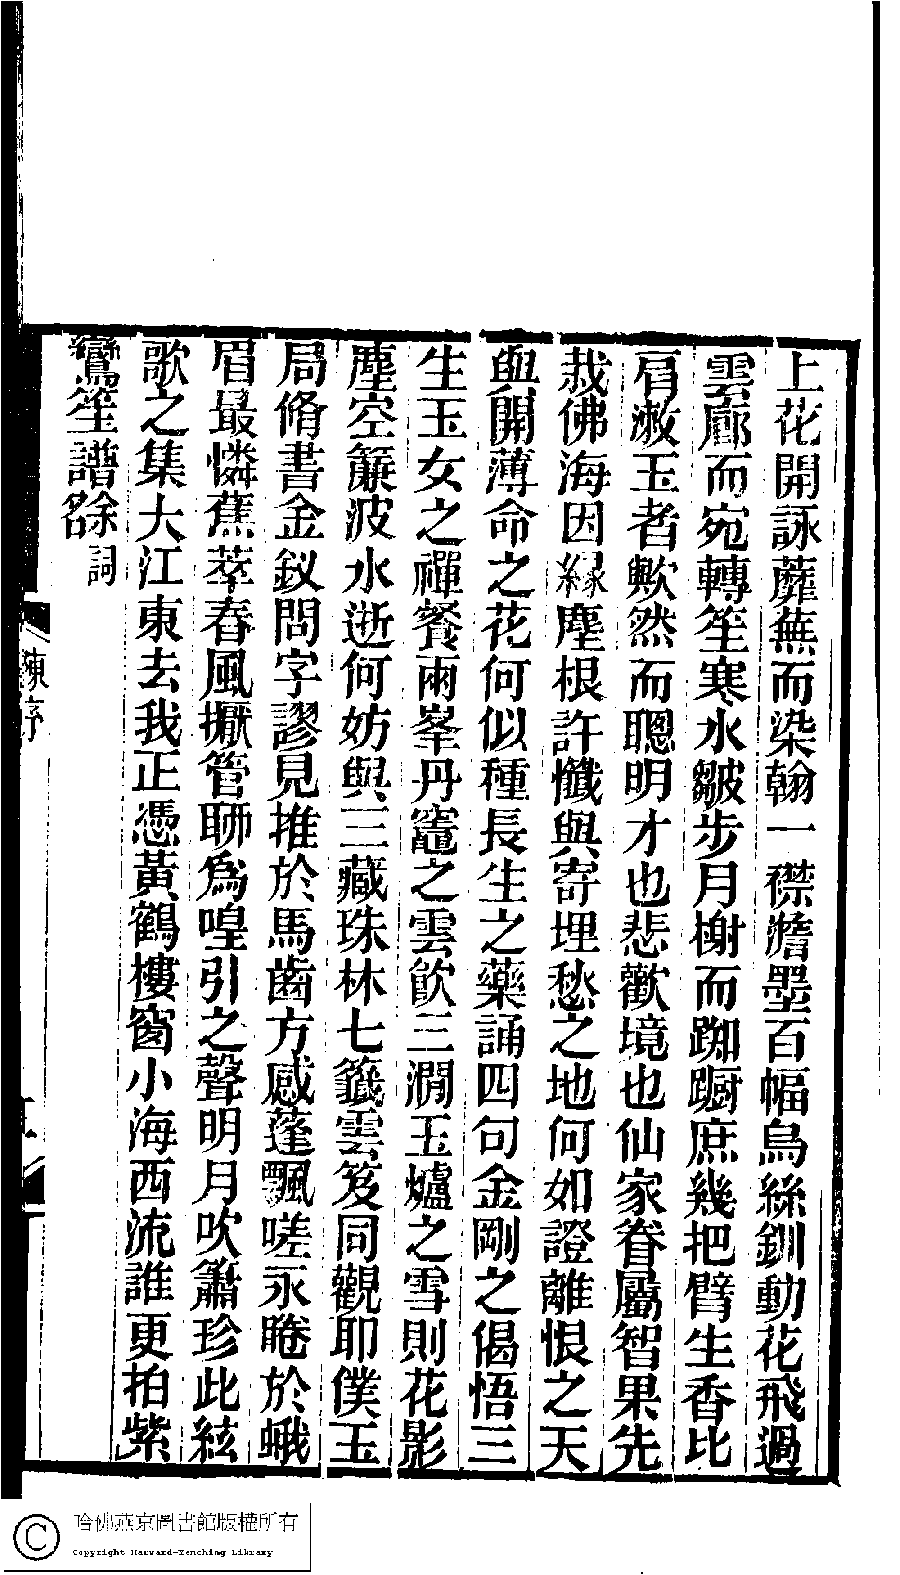 上花開詠蘼蕪而染翰一襟澹墨百幅烏絲釧動花飛過
雲廊而宛轉笙寒水皺步月榭而踟躕庶幾把臂生香比
肩漱玉者歟然而聰明才也悲歡境也仙家眷屬智果先
栽佛海因緣塵根許懺與寄埋愁之地何如證離恨之天
與開薄命之花何似種長生之藥誦四句金剛之偈悟三
生玉女之禪餐兩峯丹竈之雲飮三澗玉爐之雪則花影
塵空簾波水逝何妨與三藏珠林七籤雲笈同觀耶僕玉
局脩書金釵問字謬見推於馬齒方感蓬飄嗟永睠於蛾
眉最憐蕉萃春風擫管聊爲喤引之聲明月吹簫珍此絃
歌之集大江東去我正憑黃鶴樓窗小海西流誰更拍紫
鸞笙譜
詞
陳序
哈佛燕京圖書館版權所有
Copyright Harvard-Yenching Library